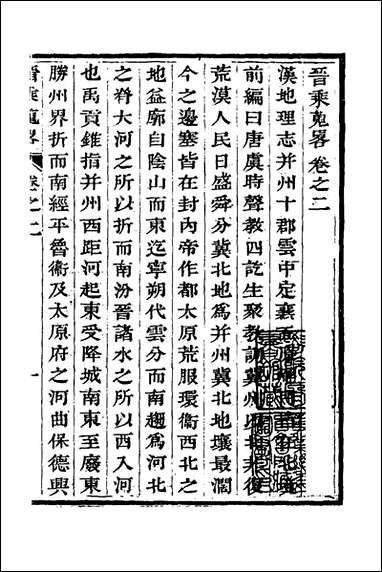 晉乘蒐畧卷之二
漢地理志并州十郡雲中定襄
前編曰唐虞時聲教四訖生聚教訓冀州以北非復
荒漠人民日盛舜分冀北地爲并州冀北地壤最濶
今之邊塞皆在封內帝作都太原荒服環衞西北之
地益廓自陰山而東迄寧朔代雲分而南趨爲河北
之脊大河之所以折而南汾晉諸水之所以西入河
也禹貢錐指并州西距河起東受降城南東至廢東
勝州界折而南經平魯衞及太原府之河曲保德興
晉乘蒐畧
卷之二
一